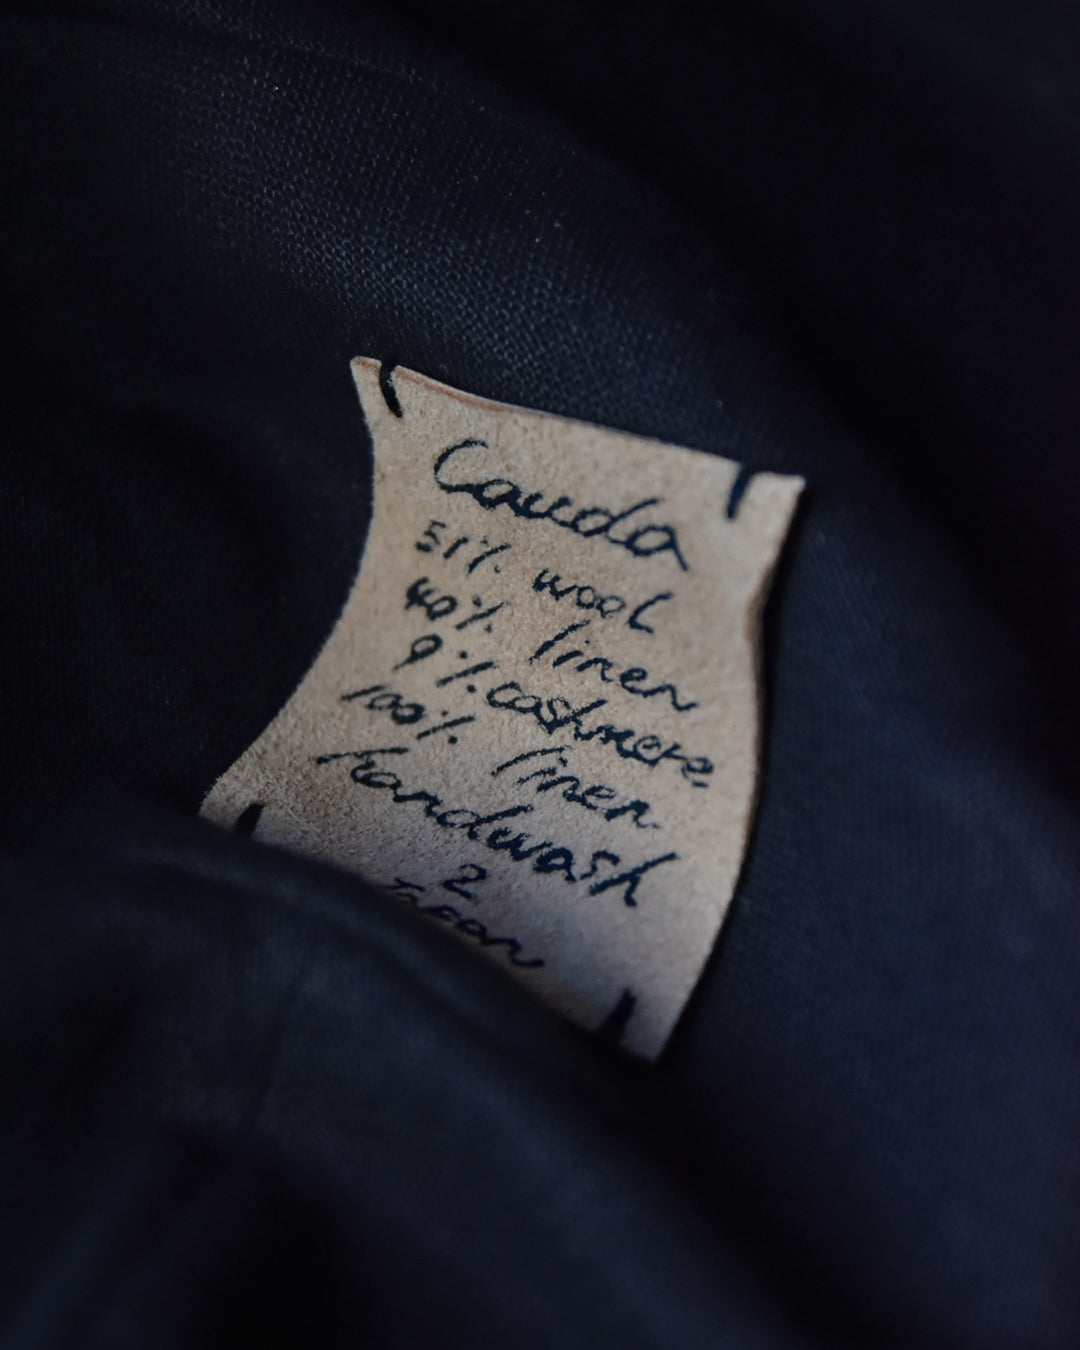 Cauda
51% wool
40% linen
9% cashmere
100% linen
handwash
2
Japan